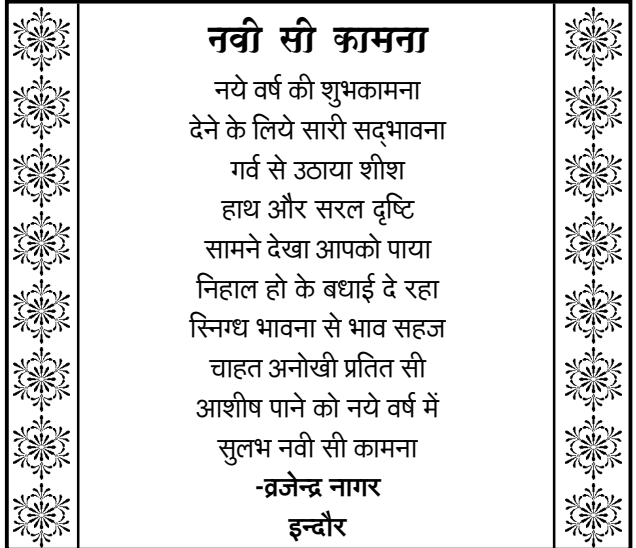 नवी सी कामना
नये वर्ष की शुभकामना
देने के लिये सारी सद्‌भावना
गर्व से उठाया शीश
हाथ और सरल दृष्टि
सामने देखा आपको पाया
निहाल हो के बधाई दे रहा
स्निग्ध भावना से भाव सहज
चाहत अनोखी प्रतित सी
आशीष पाने को नये वर्ष में
सुलभ नवी सी कामना
-व्रजेन्द्र नागर
इन्दौर